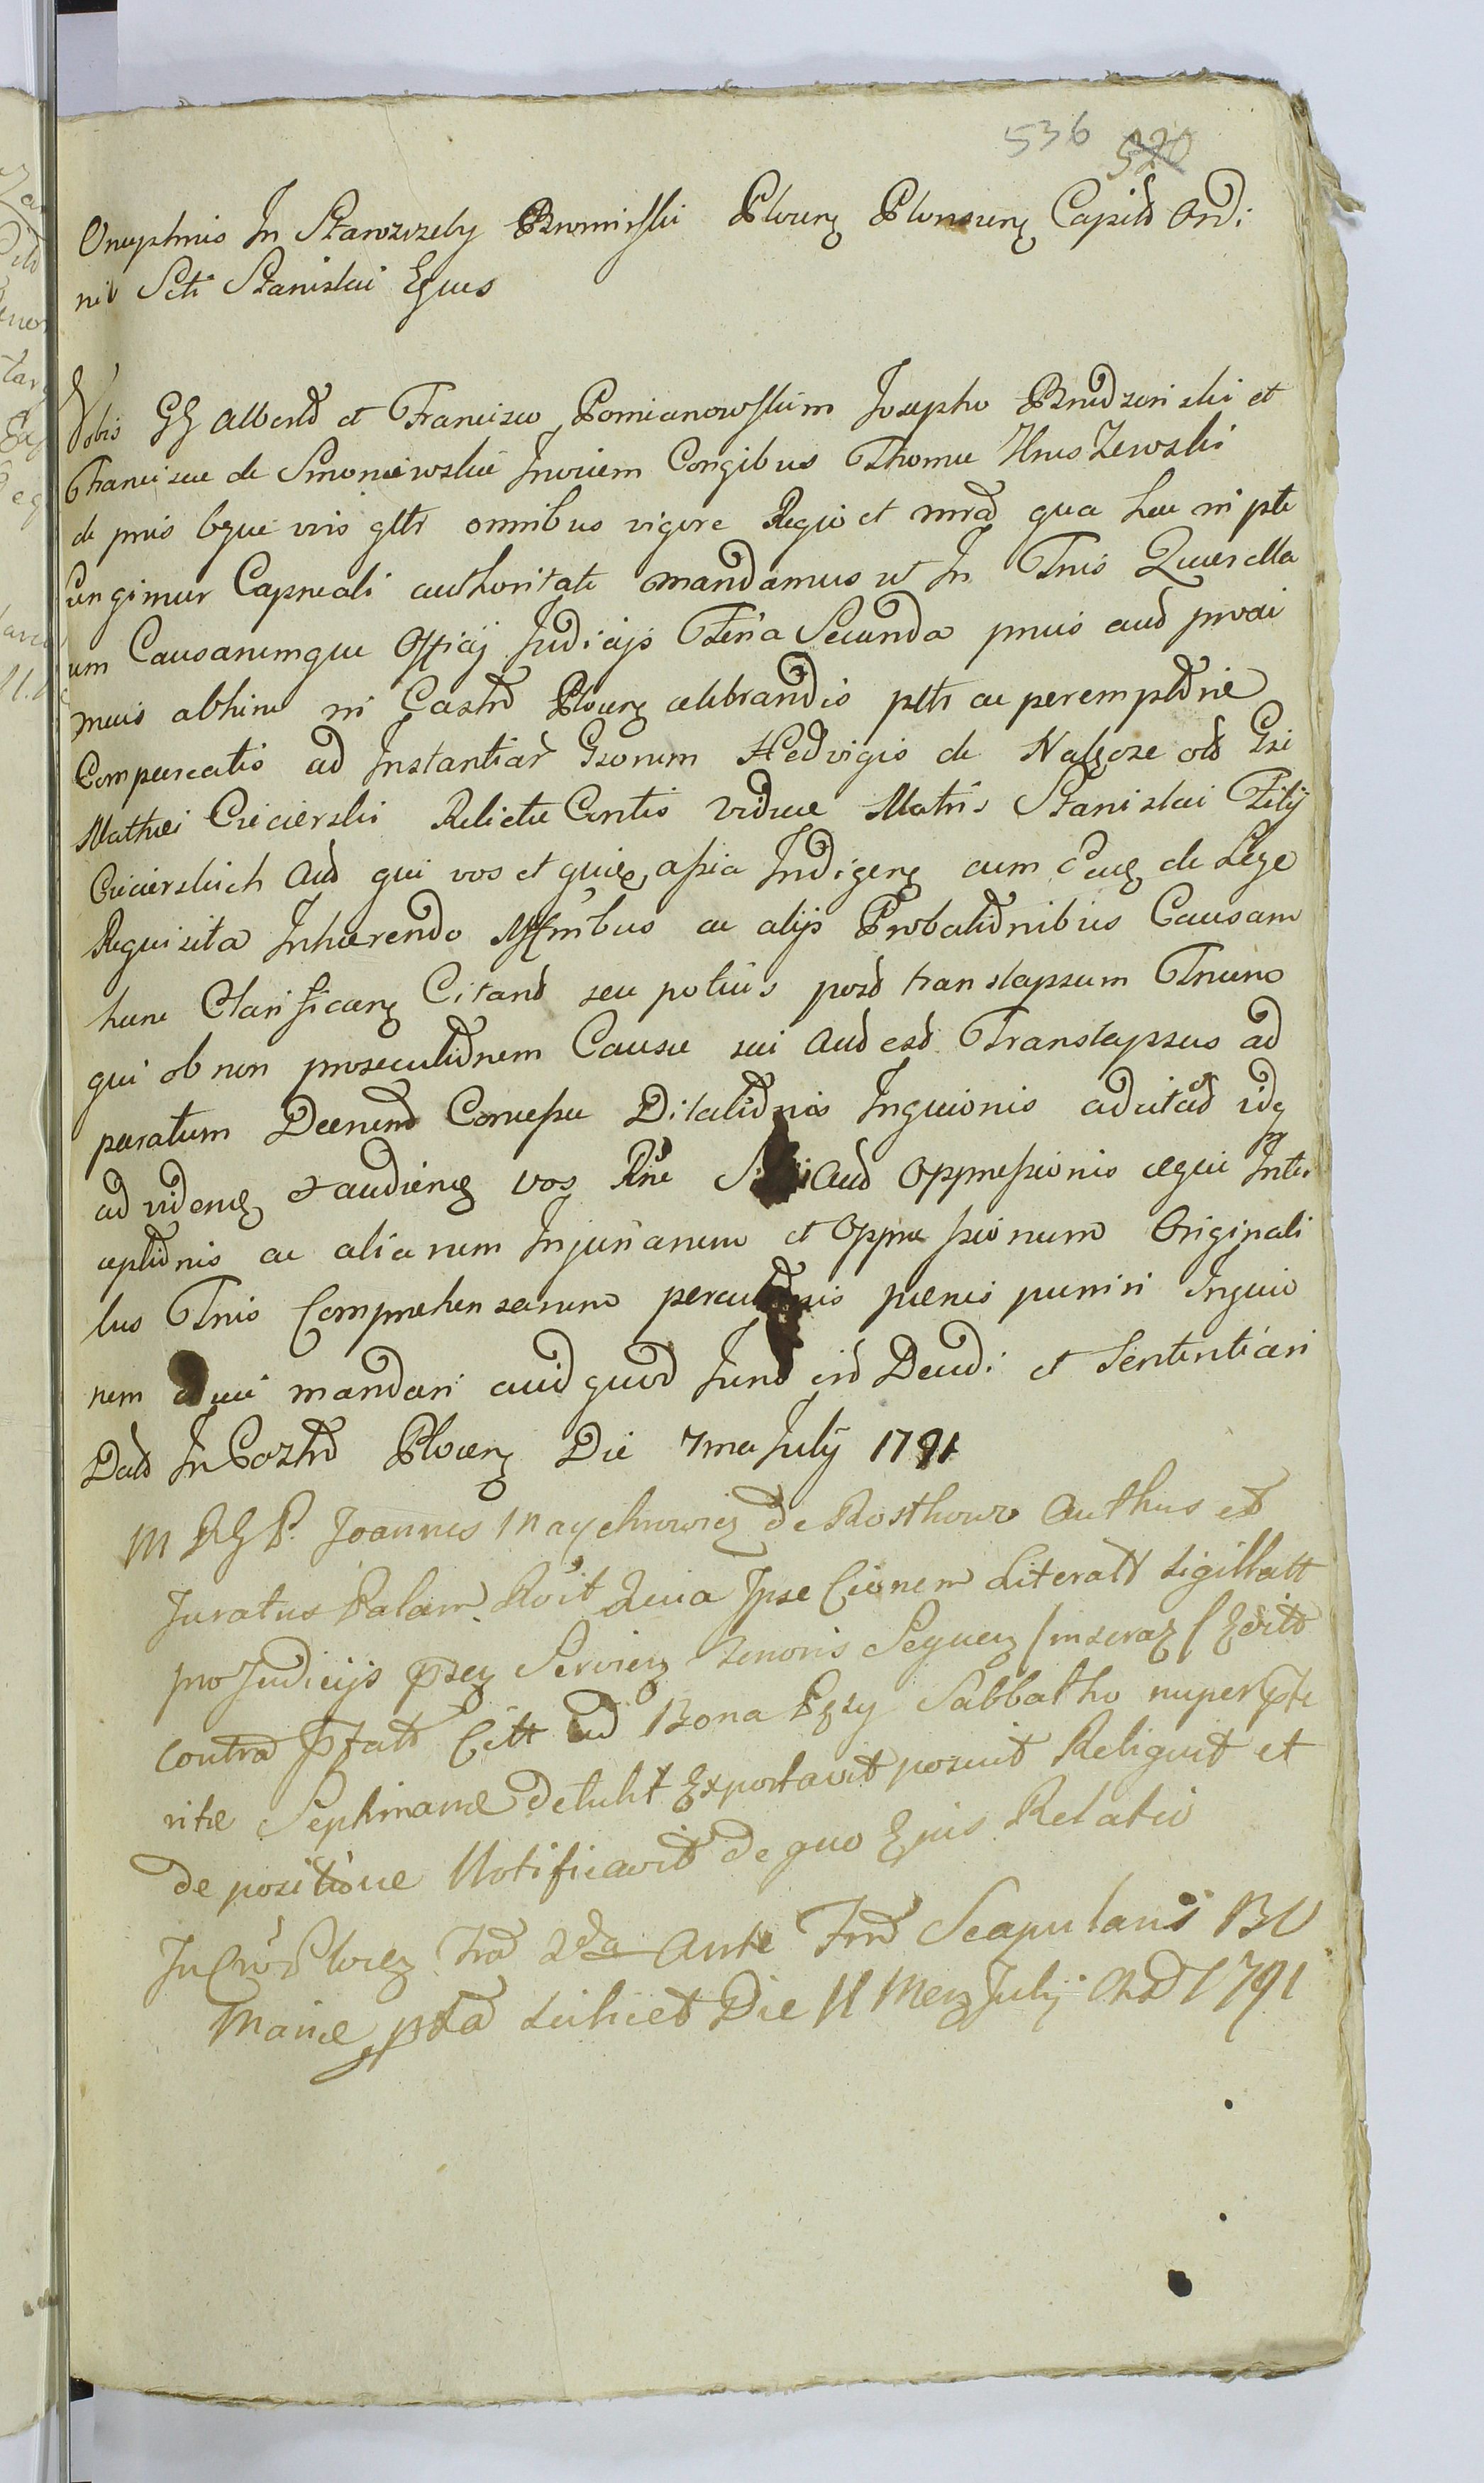 536 520
Onuphrius In Starozreby Bromirski Plocen Plonscen Capits Ordi
nis Scti Stanislai Eques
Vobis GG Alberto et Francisco Pomianowskim Josepho Brudzenski et
Franciscae de Smoniewskie Invicem Congibus Thomae Kruszewski
de prnis bque vris gltr omnibus vigore Regio et mra qua hac in pte
fungimur Capneali authoritate mandamus ut In Tnis Querella
um Causarumque Officij Judicijs Feria Secunda pnis aud proxi
mius abhinc in Castro Plocen celebrandis pltr ac peremptorie
Compareatis ad Instantiam Gsorum Hedvigis de Nalecze olo Gsi
Mathei Ciecierski Relictae Contis Viduae Matris Stanislai Filij
Ciecierskich Aud qui vos et quie apia Indigen cum de Lege
Requisita Inhaerendo ac alijs Probationibus Causam
hanc Clarifican Citand seu potius post translapsum Tnum
qui ob non prosecutionem Causae sui Aud est Translapsus ad
paratum Deenend Conessae Dilationis Inquionis adcitat idq
ad vidend et audiend vos Rne Aud Oppressionis aequi Inter
ceptionis ac aliarum Injuriarum et Oppressionum Originali
bus Tnis Comprehensarum percussionis poenis puniri Inquio
nem duci mandari aud quod Juris erit Decidi et Sententiari
Dat In Castro Plocen Die 7ma July 1791
M RG P. Joannes Maychrowicz de Rosthowo Authus et
Juratus Palam Rcoit Quia Ipse Cionem Literatt Sigillatt
pro Judicijs psen Servien Tenoris Sequen / inseras / Edito
contra Pfatt Citt ad Bona Sabbatho nuper pte
ritae Septimanae detulit Exportavit posuit Reliquit et
de positione Notificavit de quo Ejus Relatio
In Cro Plocen Fra 2da Ante Fm Scapularis BV
Mariae pta scilicet Die 11 Mens July Ao D 1791